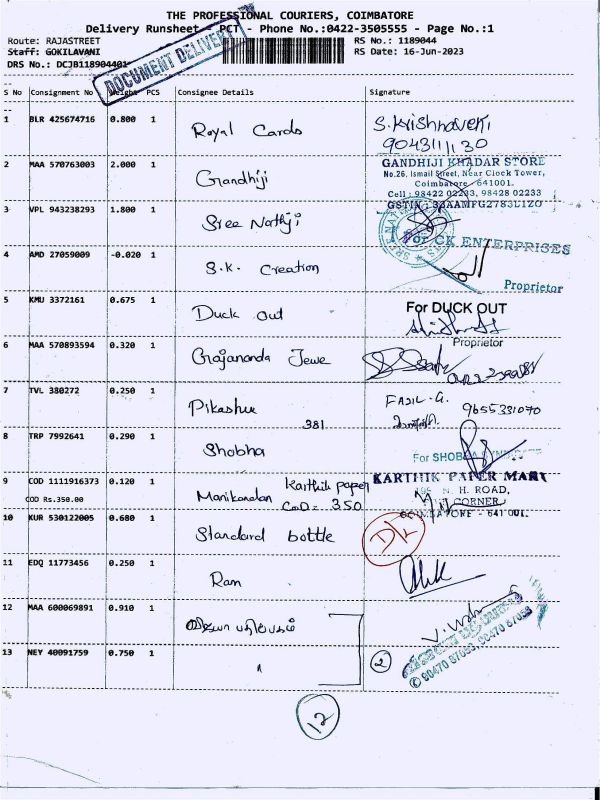 THE PROFESSIONAL COURIERS, COIMBATORE
Delivery Runsheet - PCT - Phone No.:0422-3505555 - Page No.:1
Route: RAJASTREET
Staff: GOKILAVANI
DRS No.: DCJB118904401
RS No.: 1189044
RS Date: 16-Jun-2023
DOCUMENT DELIVERY
S No Consignment No Weight PCS Consignee Details Signature
1 BLR 425674716 0.800 1 Royal Cards S.Krishnaveni
9043111130
2 MAA 570763003 2.000 1 Gandhiji
GANDHIJI KHADAR STORE
No.26, Ismail Street, Near Clock Tower,
Coimbatore - 641001.
Cell : 98422 02233, 98428 02233
GSTIN : 33AAMFG2783L1ZO
3 VPL 943238293 1.800 1 Sree Nathji
SREE NA
4 AMD 27059009 -0.020 1 S.K. Creation
For CK ENTERPRISES
Proprietor
5 KMU 3372161 0.675 1 Duck out
For DUCK OUT
Proprietor
6 MAA 570893594 0.320 1 Gajananda Jewe
7 TVL 380272 0.250 1 Pikashu
381
FASIL.A.
9655331070
8 TRP 7992641 0.290 1 Shobha
For SHOBHA SYNDICATE
9 COD 1111916373 0.120 1 Manikandan Karthik paper
COD Rs.350.00
COD = 350
KARTHIK PAPER MART
N. H. ROAD,
CORNER,
COIMBATORE - 641 001.
10 KUR 530122005 0.680 1 Standard bottle
D/L
11 EDQ 11773456 0.250 1 Ram
12 MAA 600069891 0.910 1 விஜயா பதிப்பகம்
13 NEY 40091759 0.750 1 "
2
90470 87053, 90470 87058
12